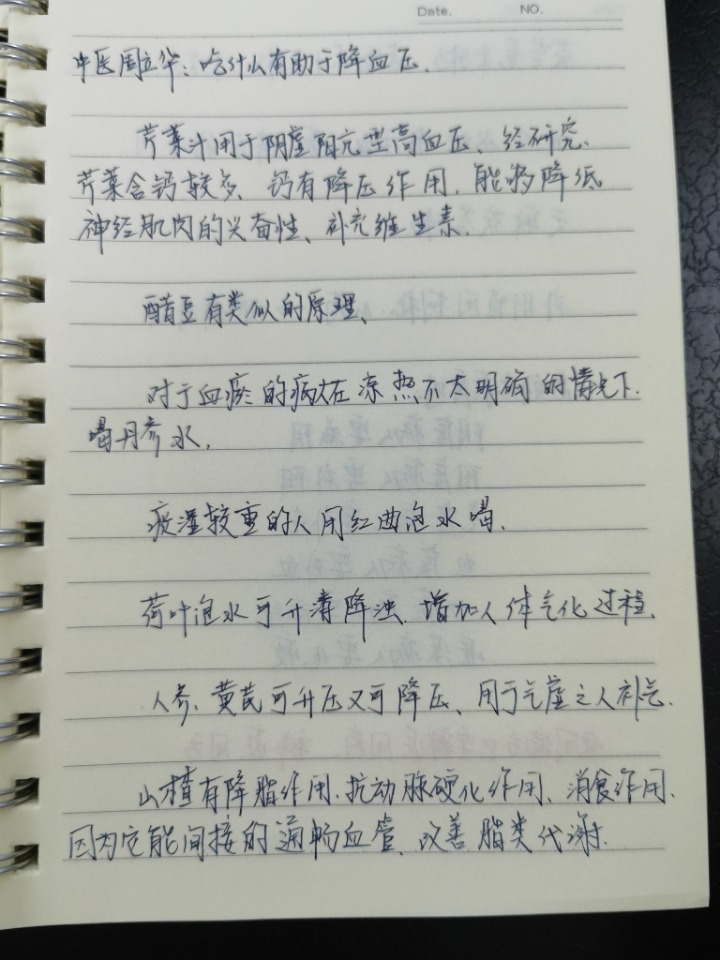 Date.    NO.
中医周立华：吃什么有助于降血压.
芹菜汁用于阴虚阳亢型高血压、经研究、
芹菜含钙较多、钙有降压作用.能够降低
神经肌肉的兴奋性、补充维生素.
醋豆有类似的原理、
对于血瘀的病人在凉热不太明确的情况下.
喝丹参水.
痰湿较重的人用红曲泡水喝.
荷叶泡水可升清降浊.增加人体气化过程.
人参、黄芪可升压又可降压、用于气虚之人补气.
山楂有降脂作用.抗动脉硬化作用、消食作用.
因为它能间接的通畅血管、改善脂类代谢.